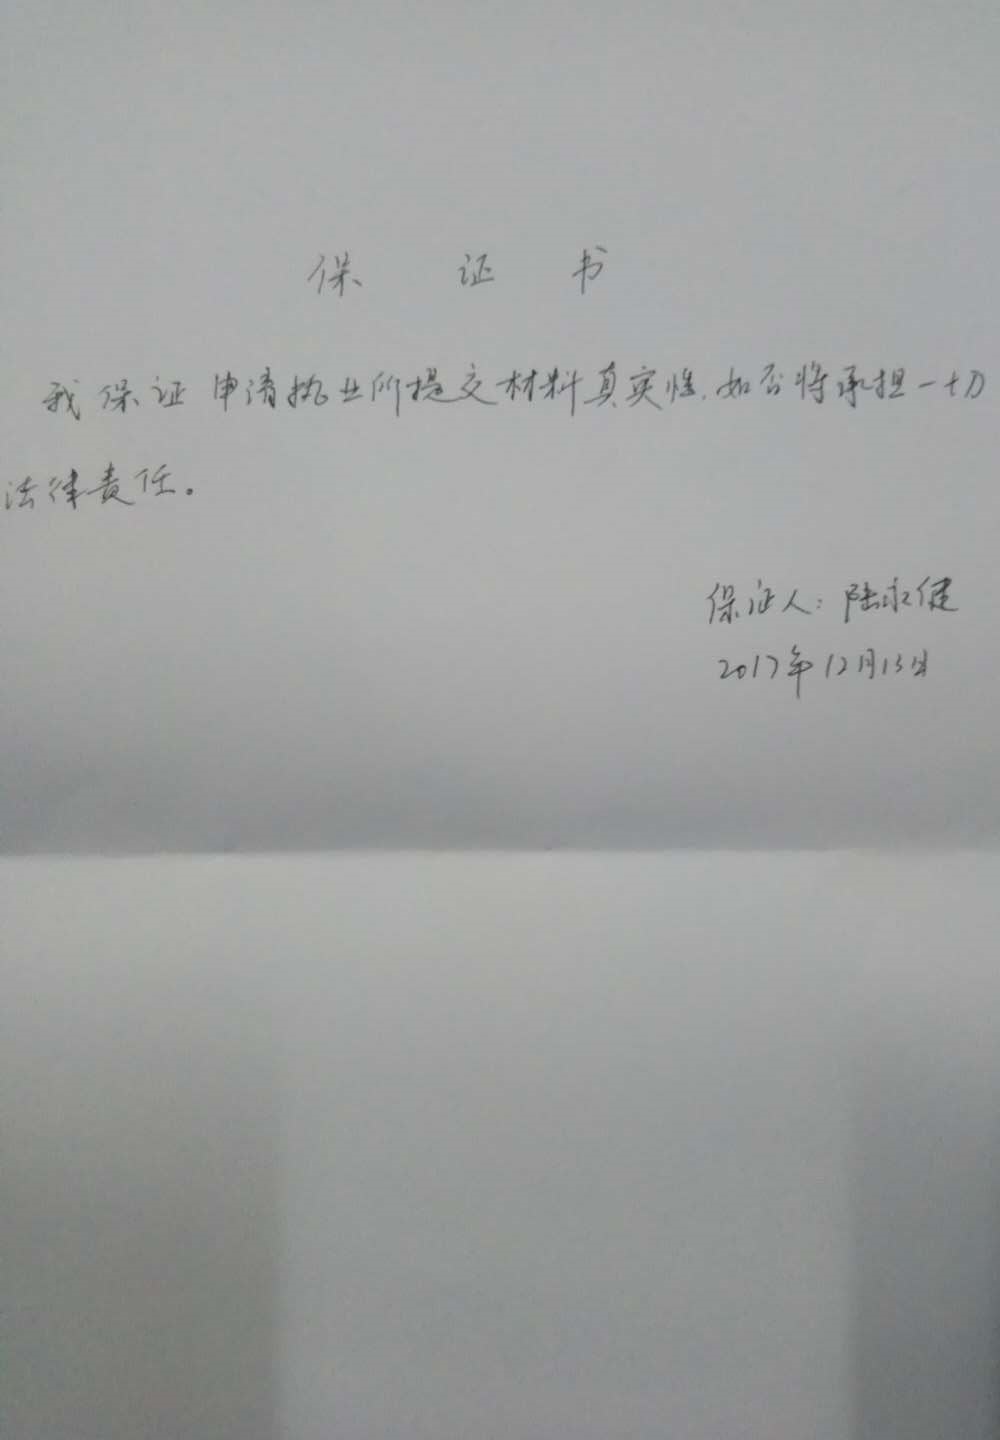 保 证 书
我保证申请执业所提交材料真实性.如否将承担一切
法律责任。
保证人:陆永健
2017年12月13日